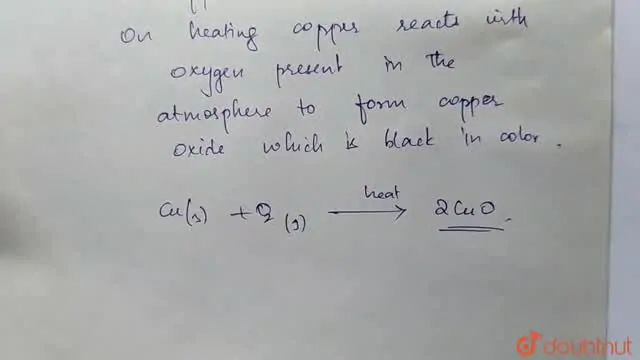 On heating copper reacts with
oxygen present in the
atmosphere to form copper
oxide which is black in color.
heat
Cu(s) + O2 (g) → 2CuO.
doubtnut